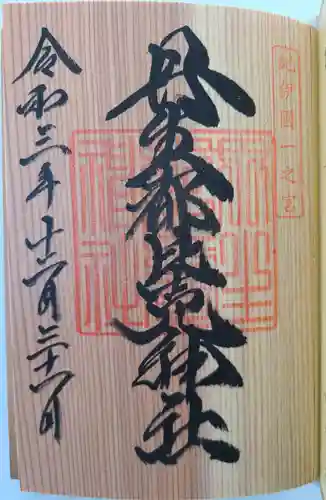 紀伊國一之宮
丹生都比売神社
令和三年十二月二十六日